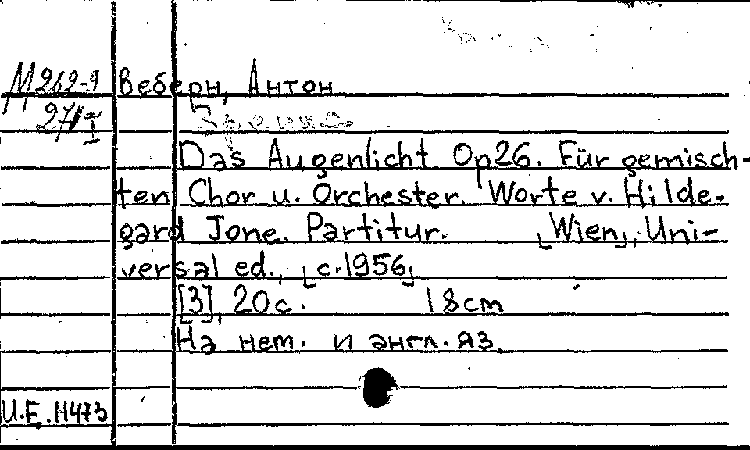 М 262-9 Веберн, Антон
271/I
Das Augenlicht Op26. Für gemisch-
ten Chor u. Orchester. Worte v. Hilde-
gard Jone. Partitur. [Wien], Uni-
versal ed., [c.1956]
[3], 20 с. 18 cm
На нем. и англ. яз.
U.E. 11473